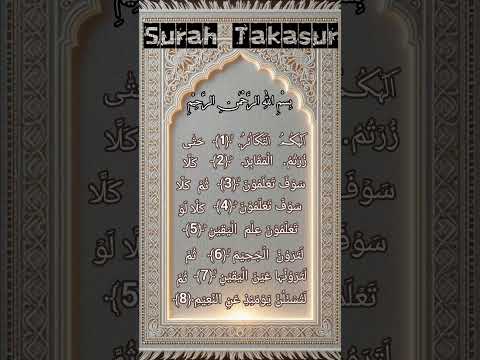 Surah Takasur
بِسْمِ اللهِ الرَّحْمٰنِ الرَّحِيْمِ
اَلْهٰكُمُ التَّكَاثُرُ ۙ﴿1﴾ حَتّٰى
زُرْتُمُ الْمَقَابِرَ ؕ﴿2﴾ كَلَّا
سَوْفَ تَعْلَمُوْنَ ۙ﴿3﴾ ثُمَّ كَلَّا
سَوْفَ تَعْلَمُوْنَ ؕ﴿4﴾ كَلَّا لَوْ
تَعْلَمُوْنَ عِلْمَ الْيَقِيْنِ ؕ﴿5﴾
لَتَرَوُنَّ الْجَحِيْمَ ۙ﴿6﴾ ثُمَّ
لَتَرَوُنَّهَا عَيْنَ الْيَقِيْنِ ۙ﴿7﴾ ثُمَّ
لَتُسْئَلُنَّ يَوْمَئِذٍ عَنِ النَّعِيْمِ ﴿8﴾